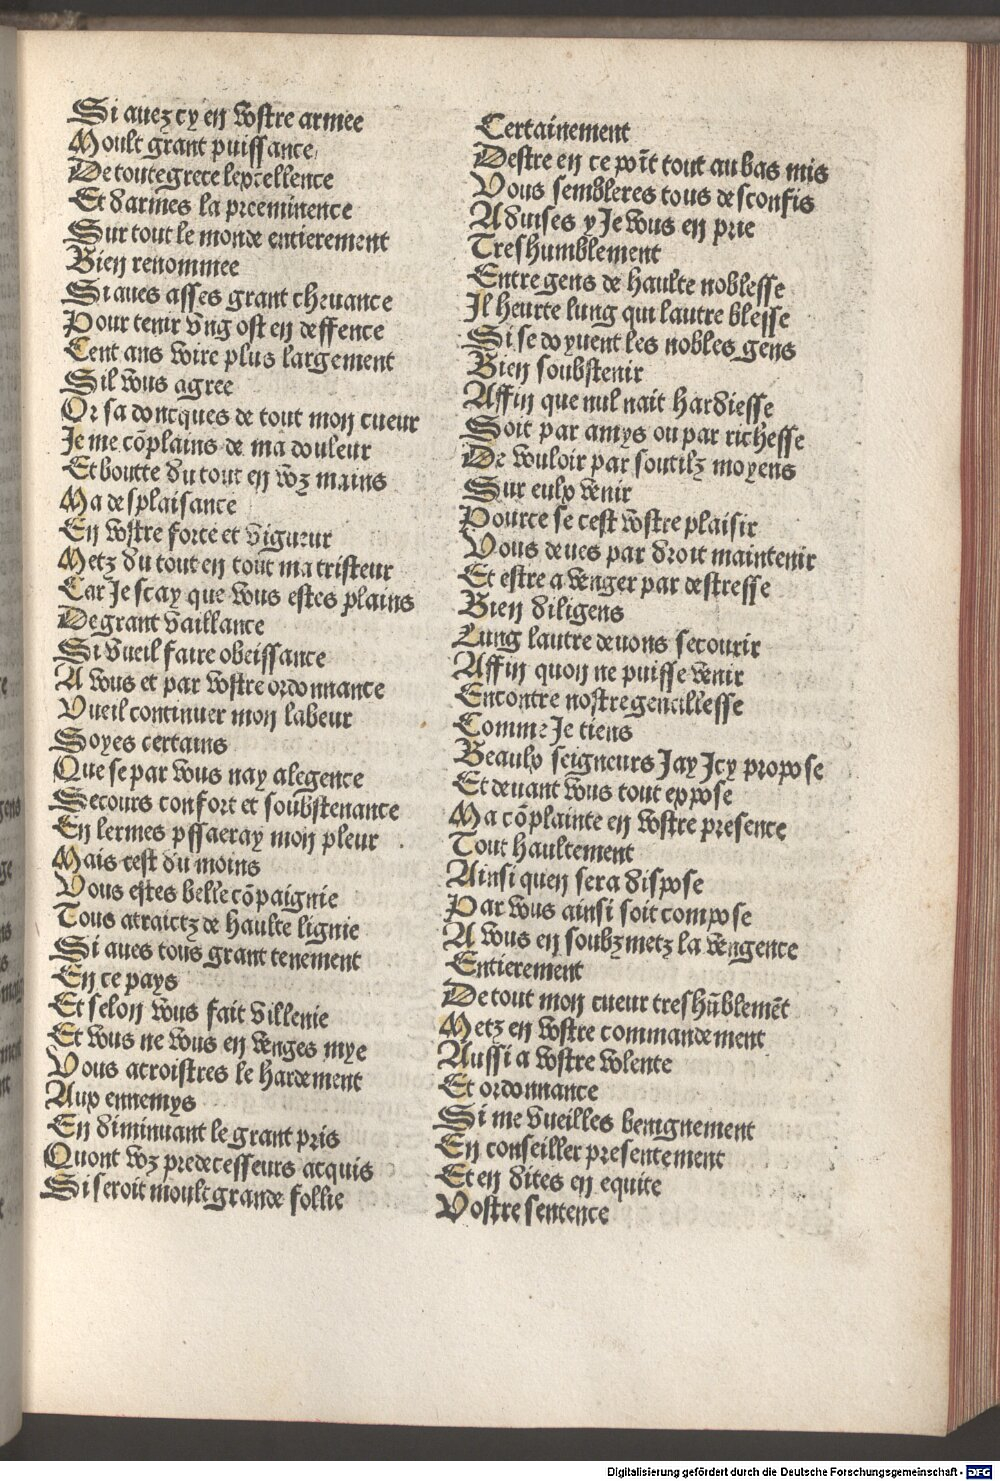 Si auez cy en vostre armee
Moult grant puissance
De toute grece lexcellence
Et darmes la preeminence
Sur tout le monde entierement
Bien renommee
Si aues asses grant cheuance
Pour tenir vng ost en deffence
Cent ans voire plus largement
Sil vous agree
Or sa doncques de tout mon cueur
Je me cõplains de ma douleur
Et boutte du tout en voz mains
Ma desplaisance
En vostre force et vigueur
Metz du tout en tout ma tristeur
Car Je scay que vous estes plains
De grant vaillance
Si vueil faire obeissance
A vous et par vostre ordonnance
Vueil continuer mon labeur
Soyes certains
Que se par vous nay alegence
Secours confort et soubstenance
En lermes pssaeray mon pleur
Mais cest du moins
Vous estes belle cõpaignie
Tous atraictz de haulte lignie
Si aues tous grant tenement
En ce pays
Et selon vous fait villenie
Et vous ne vous en venges mye
Vous acroistres le hardement
Aux ennemys
En diminuant le grant pris
Quont voz predecesseurs acquis
Si seroit moult grande follie
Certainement
Destre en ce poĩt tout au bas mis
Vous sembleres tous desconfis
Aduises y Je vous en prie
Treshumblement
Entre gens de haulte noblesse
Il heurte lung qui lautre blesse
Si se doyuent les nobles gens
Bien soubstenir
Affin que nul nait hardiesse
Soit par amys ou par richesse
De vouloir par soutilz moyens
Sur eulx venir
Pource se cest vostre plaisir
Vous deues par droit maintenir
Et estre a venger par destresse
Bien diligens
Lung lautre deuons secourir
Affin quon ne puisse venir
Encontre nostre gentillesse
Comme Je tiens
Beaulx seigneurs Jay Jcy propose
Et deuant vous tout expose
Ma cõplainte en vostre presence
Tout haultement
Ainsi quen sera dispose
Par vous ainsi soit compose
A vous en soubzmetz la vengence
Entierement
De tout mon cueur treshũblemẽt
Metz en vostre commandement
Aussi a vostre volente
Et ordonnance
Si me vueilles benignement
En conseiller presentement
Et en dites en equite
Vostre sentence
Digitalisierung gefördert durch die Deutsche Forschungsgemeinschaft - DFG